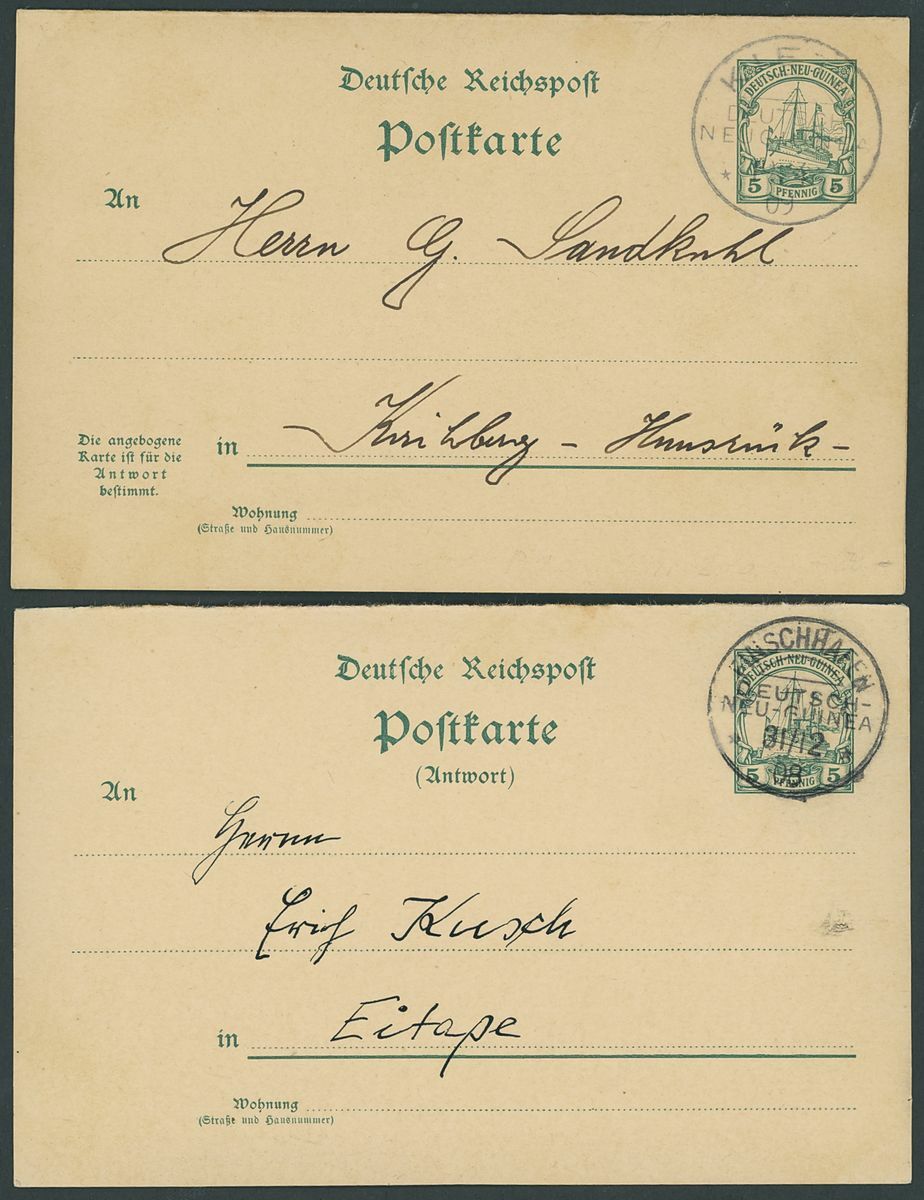 Deutsche Reichspost
Postkarte
DEUTSCH-NEU-GUINEA
5 PFENNIG 5
09
An Herrn G. Sandkuhl
in Kirchberg - Hunsrück -
Die angebogene
Karte ist für die
Antwort
bestimmt.
Wohnung
(Straße und Hausnummer)
Deutsche Reichspost
Postkarte
(Antwort)
DEUTSCH-NEU-GUINEA
5 PFENNIG 5
FINSCHHAFEN
DEUTSCH-
NEU-GUINEA
31/12
09
An
Herrn
Erich Kusch
in Eitape
Wohnung
(Straße und Hausnummer)